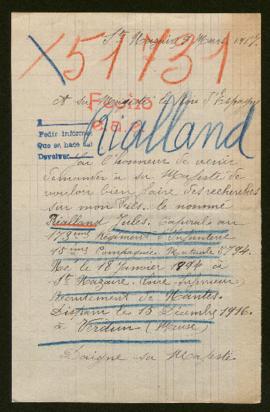 St Nazaire 5 Mars 1917
X51731
A su Majesté le Roi d'Espagne
Fecho
Rialland
Pedir inform
Que se hace
Devolver
l'honneur de venir
demander à sa Majesté de
vouloir bien faire des recherches
sur mon fils. le nommé
Rialland Jules. Caporal au
Régiment d'Infanterie
Compagnie. Matricule 8794.
Né le 18 Janvier 1894 à
St Nazaire. Loire Inférieure
Recrutement de Nantes.
Disparu le 15 Décembre 1916.
à Verdun (Meuse)
Daigne sa Majesté